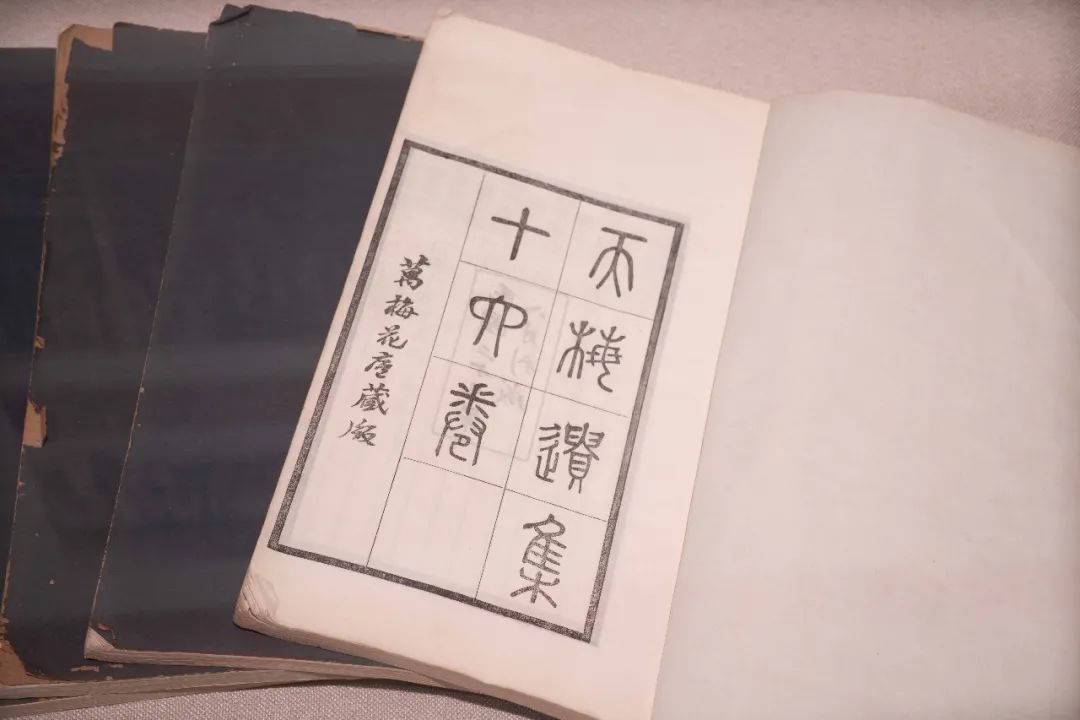 天梅遺集
十六卷
萬梅花廬藏版